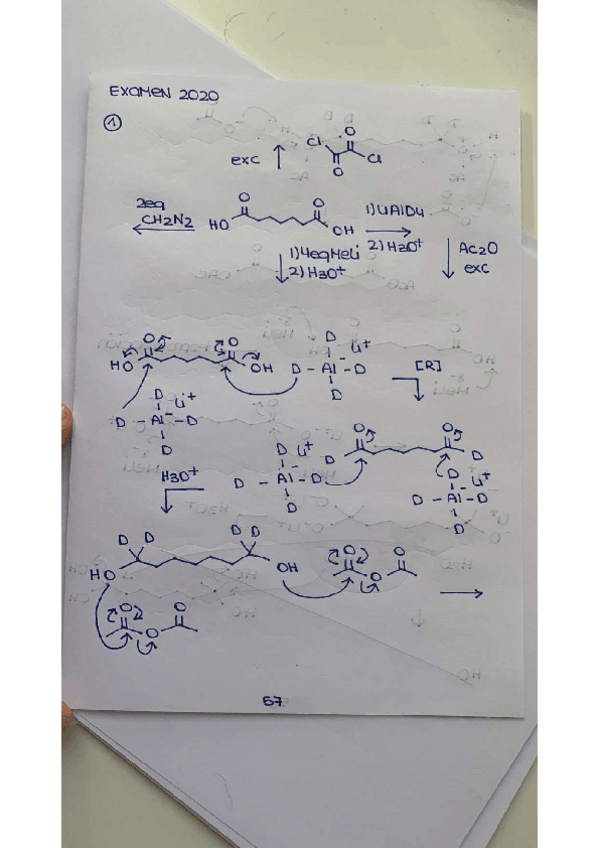 EXAMEN 2020
①
exc
Cl
O
O
Cl
2eq
CH2N2
HO
O
O
OH
1) LiAlD4
2) H3O+
1) 4eq MeLi
2) H3O+
Ac2O
exc
HO
O
O
OH
D
Li+
D - Al- - D
D
[R]
D
Li+
D - Al- - D
D
H3O+
D
Li+
D - Al- - D
D
D
O
O
D
D
Li+
D - Al- - D
D
D D
HO
D D
OH
O
O
O
O
O
O
67